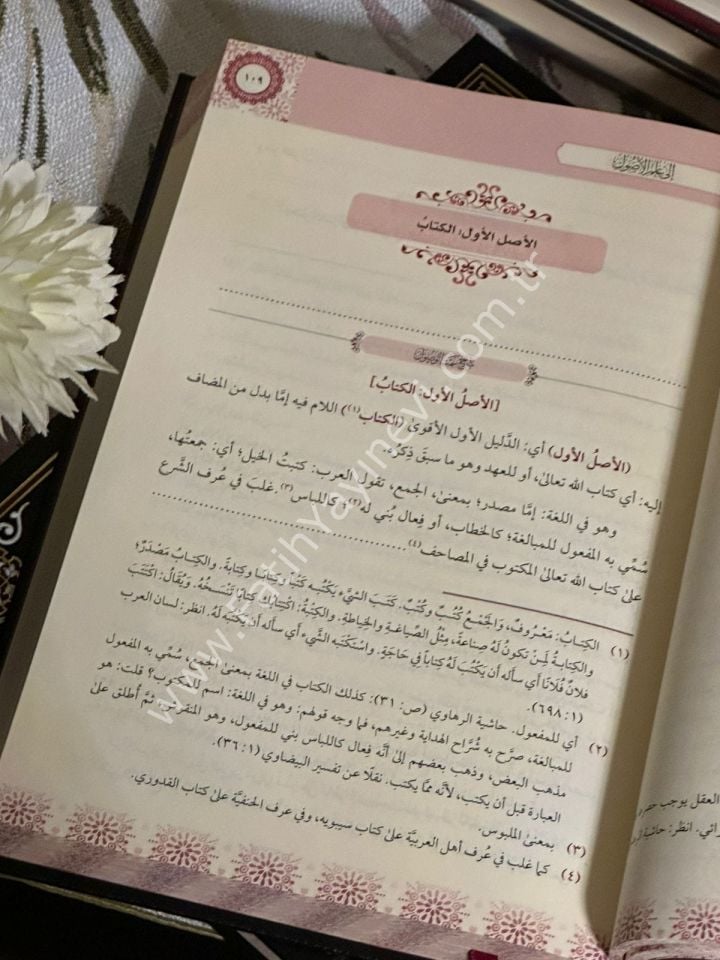 ١٠٩
إلى علم الأصول
الأصل الأول: الكتابُ
[الأصلُ الأول: الكتابُ]
(الأصلُ الأول) أي: الدَّليل الأول الأقوىٰ (الكتاب(١)) اللام فيه إمَّا بدل من المضاف
إليه: أي كتاب الله تعالىٰ، أو للعهد وهو ما سبقَ ذِكرُه.
وهو في اللغة: إمَّا مصدر؛ بمعنىٰ، الجمع، تقول العرب: كتبتُ الخيل؛ أي: جمعتُها،
سُمِّي به المفعول للمبالغة؛ كالخطاب، أو فِعال بُني له(٢)؛ كاللباس(٣). غلبَ في عُرف الشَّرع
علىٰ كتاب الله تعالىٰ المكتوب في المصاحف(٤)
(١) الكِتابُ: مَعْروفٌ، وَالجَمْعُ كُتُبٌ وكُتْبٌ. كَتَبَ الشَّيْءَ يَكْتُبه كَتْبًا وكِتابًا وكِتابةً. والكِتابُ مَصْدَرٌ؛
والكِتابةُ لِمَنْ تَكونُ لَهُ صِناعةٌ، مِثْلُ الصِّياغةِ والخِياطةِ. والكِتْبةُ: اكْتِتابُكَ كتابًا تَنْسَخُهُ. وَيُقَالُ: اكْتَتَبَ
فلانٌ فُلانًا أي سأله أن يَكْتُبَ لَهُ كِتاباً في حَاجَةٍ. واسْتَكْتَبَه الشَّيءَ أي سأَله أن يَكْتُبَه لَهُ. انظر: لسان العرب
(١: ٦٩٨).
(٢) أي للمفعول. حاشية الرهاوي (ص: ٣١): كذلك الكتاب في اللغة بمعنىٰ الجمع، سُمِّي به المفعول
للمبالغة، صرَّح به شُرَّاح الهداية وغيرهم، فما وجه قولهم: وهو في اللغة: اسم للمكتوب؟ قلت: هو
مذهب البعض، وذهب بعضهم إلىٰ أنَّه فِعال كاللباس بني للمفعول، وهو المنقوش، ثمَّ أُطلق علىٰ
العبارة قبل أن يكتب، لأنَّه ممَّا يكتب. نقلًا عن تفسير البيضاوي (١: ٣٦).
(٣) بمعنىٰ الملبوس.
(٤) كما غلب في عُرف أهل العربيَّة علىٰ كتاب سيبويه، وفي عرف الحنفيَّة علىٰ كتاب القدوري.
العقل يوجب
انظر: حاشية
www.FatihYayinevi.com.tr